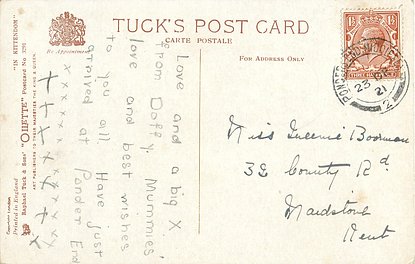 TUCK'S POST CARD
CARTE POSTALE
By Appointment
FOR ADDRESS ONLY
"IN KITTENDOM"
Raphael Tuck & Sons' "OILETTE" Postcard No.
ART PUBLISHERS TO THEIR MAJESTIES THE KING & QUEEN.
Printed in England.
Copyright London
Love and a big X
from Dolly. Mummies
love and best wishes
to you all Have just
arrived at Ponder End
PONDERS END
23
21
2
Miss Queenie Bowman
32 County Rd
Maidstone
Kent